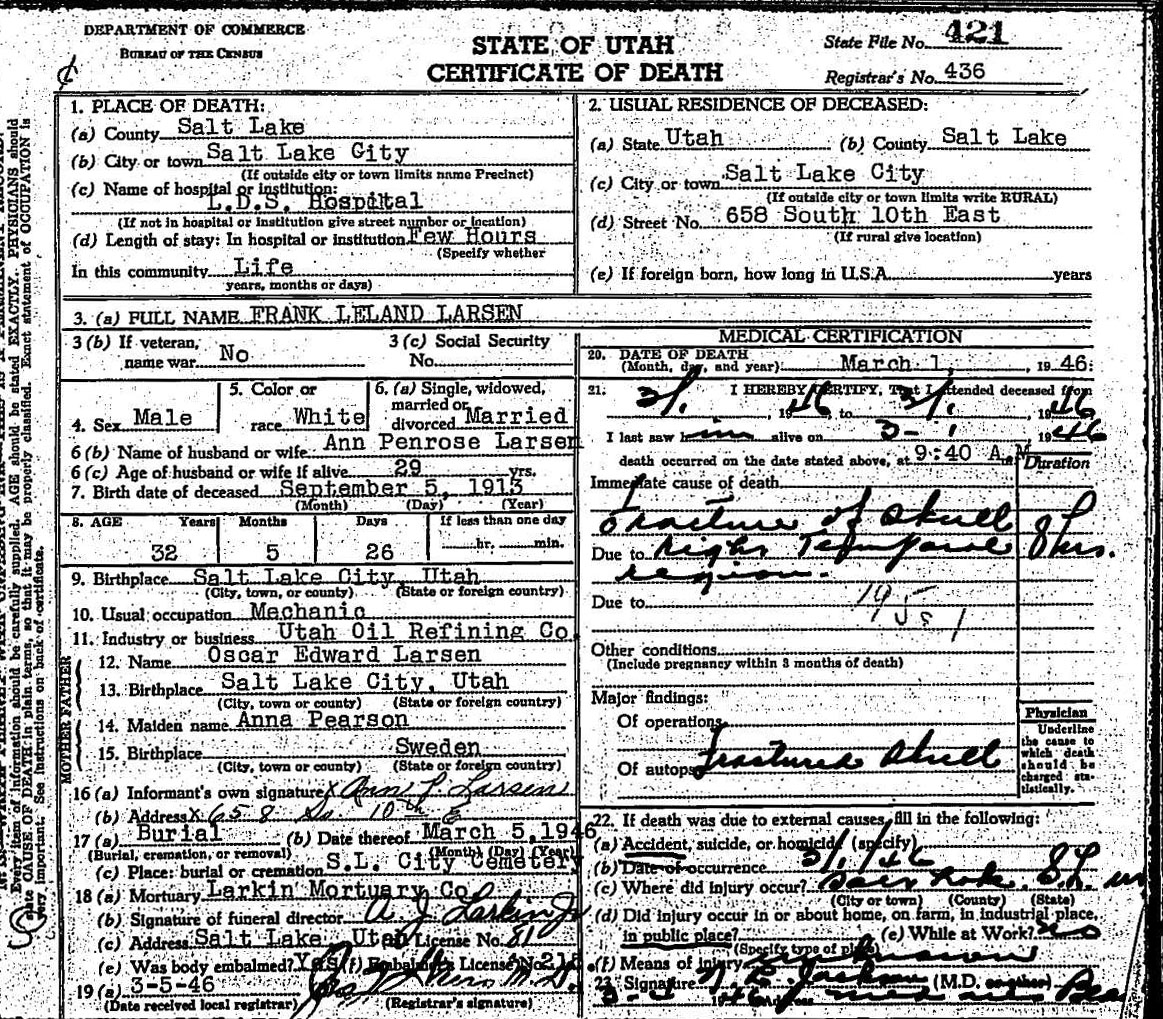 DEPARTMENT OF COMMERCE
BUREAU OF THE CENSUS
STATE OF UTAH
CERTIFICATE OF DEATH
State File No. 421
Registrar's No. 436
1. PLACE OF DEATH:
(a) County Salt Lake
(b) City or town Salt Lake City
(If outside city or town limits name Precinct)
(c) Name of hospital or institution:
L.D.S. Hospital
(If not in hospital or institution give street number or location)
(d) Length of stay: In hospital or institution Few Hours
(Specify whether
In this community Life
years, months or days)
2. USUAL RESIDENCE OF DECEASED:
(a) State Utah (b) County Salt Lake
(c) City or town Salt Lake City
(If outside city or town limits write RURAL)
(d) Street No. 658 South 10th East
(If rural give location)
(e) If foreign born, how long in U.S.A. years
3. (a) FULL NAME FRANK LELAND LARSEN
3 (b) If veteran, name war No
3 (c) Social Security No.
4. Sex Male
5. Color or race White
6. (a) Single, widowed, married or divorced Married
6 (b) Name of husband or wife Ann Penrose Larsen
6 (c) Age of husband or wife if alive 29 yrs.
7. Birth date of deceased September 5, 1913
(Month) (Day) (Year)
8. AGE Years Months Days If less than one day
32 5 26 hr. min.
9. Birthplace Salt Lake City, Utah
(City, town, or county) (State or foreign country)
10. Usual occupation Mechanic
11. Industry or business Utah Oil Refining Co.
FATHER
12. Name Oscar Edward Larsen
13. Birthplace Salt Lake City, Utah
(City, town or county) (State or foreign country)
MOTHER
14. Maiden name Anna Pearson
15. Birthplace Sweden
(City, town or county) (State or foreign country)
16 (a) Informant's own signature x Ann P. Larsen
(b) Address x 658 So. 10th E
17 (a) Burial (b) Date thereof March 5, 1946
(Burial, cremation, or removal) (Month) (Day) (Year)
(c) Place: burial or cremation S.L. City Cemetery
18 (a) Mortuary Larkin Mortuary Co.
(b) Signature of funeral director A. J. Larkin Jr
(c) Address Salt Lake, Utah License No. 81
(e) Was body embalmed? Yes (f) Embalmer's License No.
19 (a) 3-5-46
(Date received local registrar) (Registrar's signature)
MEDICAL CERTIFICATION
20. DATE OF DEATH
(Month, day, and year) March 1, 1946
21. I HEREBY CERTIFY, That I attended deceased from
3/1, 1946, to 3/1, 1946
I last saw him alive on 3-1 1946
death occurred on the date stated above, at 9:40 A.M.
Duration
Immediate cause of death
Fracture of skull 8 hrs.
Due to right Temporal
region.
Due to 195
1
Other conditions
(Include pregnancy within 3 months of death)
Major findings:
Of operations
Of autopsy Fractured skull
Physician
Underline the cause to which death should be charged statistically.
22. If death was due to external causes, fill in the following:
(a) Accident, suicide, or homicide (specify)
(b) Date of occurrence 3/1/46
(c) Where did injury occur?
(City or town) (County) (State)
(d) Did injury occur in or about home, on farm, in industrial place,
in public place? (e) While at Work? no
(Specify type of place)
(f) Means of injury unknown
23. Signature (M.D. or other)